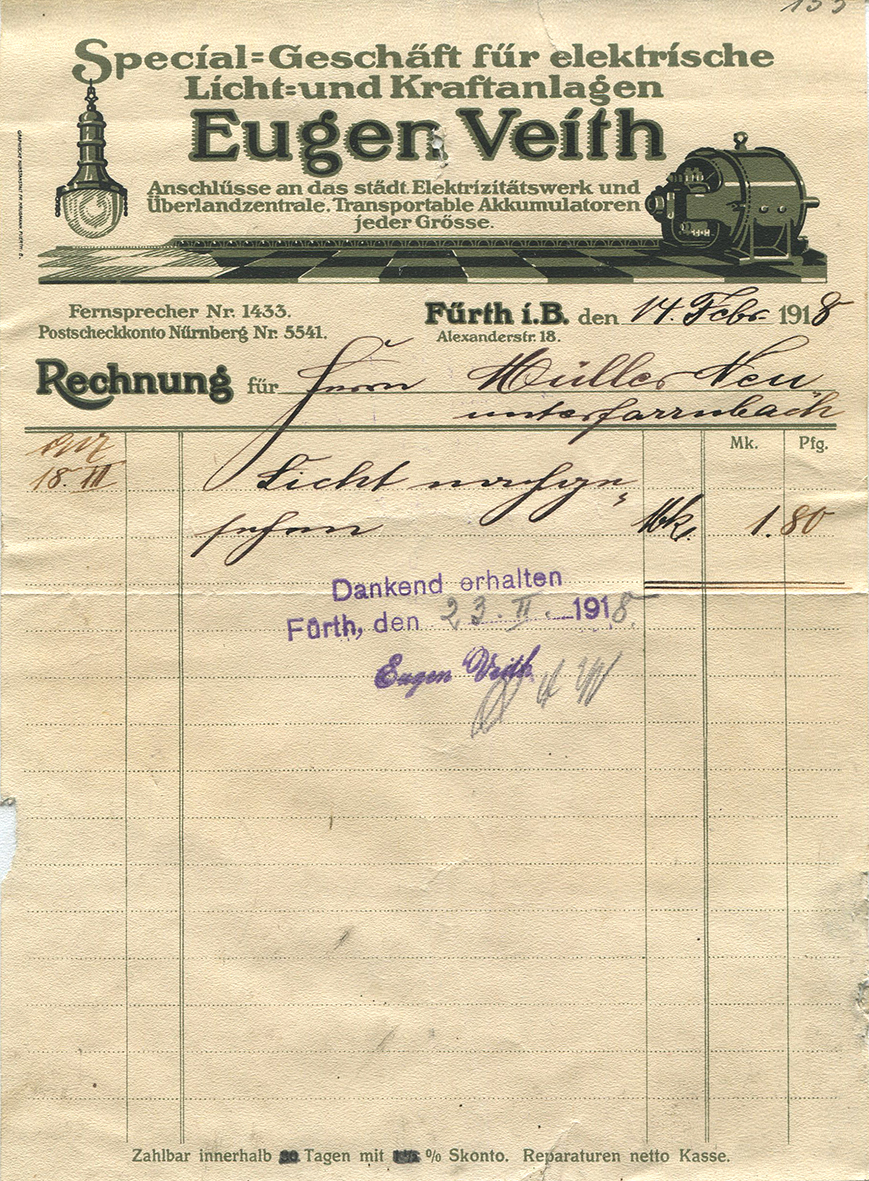 133
Special=Geschäft für elektrische
Licht=und Kraftanlagen
Eugen Veith
Anschlüsse an das städt. Elektrizitätswerk und
Überlandzentrale. Transportable Akkumulatoren
jeder Grösse.
Fernsprecher Nr. 1433.
Postscheckkonto Nürnberg Nr. 5541.
Fürth i.B. den 14. Febr. 1918
Alexanderstr. 18.
Rechnung für Herrn Müller Neu
unterfarrnbach
Mk. Pfg.
1917
18. III Licht nachge„
sehen Mk. 1.80
Dankend erhalten
Fürth, den 23. II. 1918
Eugen Veith
Zahlbar innerhalb Tagen mit % Skonto. Reparaturen netto Kasse.